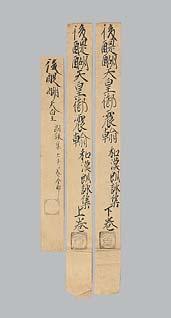 後醍醐天皇御宸翰和漢朗詠集下巻
後醍醐天皇御宸翰和漢朗詠集上巻
後醍醐天皇